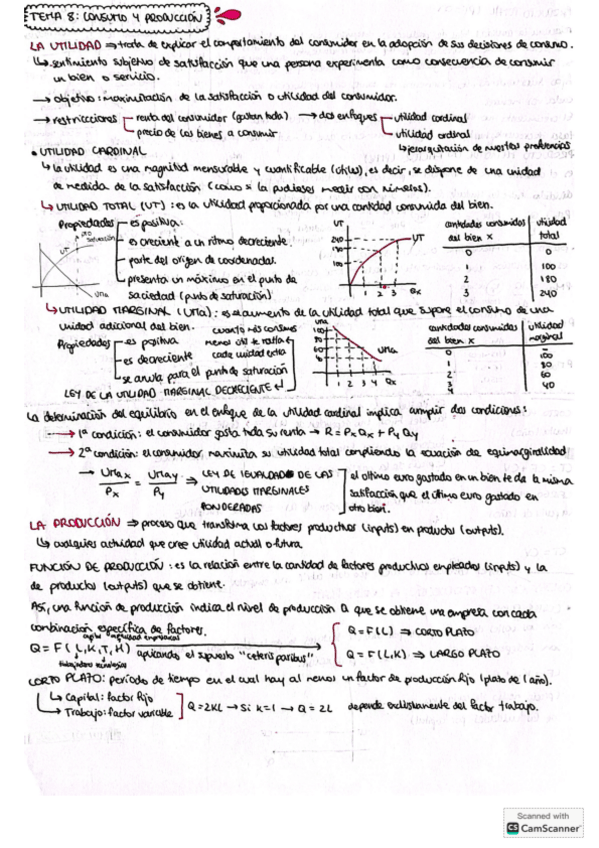 TEMA 8: CONSUMO Y PRODUCCIÓN
LA UTILIDAD ⇒ trata de explicar el comportamiento del consumidor en la adopción de sus decisiones de consumo.
↳ sentimiento subjetivo de satisfacción que una persona experimenta como consecuencia de consumir
un bien o servicio.
→ objetivo: maximización de la satisfacción o utilidad del consumidor.
→ restricciones renta del consumidor (gastan toda) → dos enfoques utilidad cardinal
precio de los bienes a consumir utilidad ordinal
↳ jerarquización de nuestras preferencias
• UTILIDAD CARDINAL
↳ la utilidad es una magnitud mensurable y cuantificable (utils), es decir, se dispone de una unidad
de medida de la satisfacción (como si la pudieses medir con números).
↳ UTILIDAD TOTAL (UT): es la utilidad proporcionada por una cantidad consumida del bien.
Propiedades es positiva.
es creciente a un ritmo decreciente.
parte del origen de coordenadas.
presenta un máximo en el punto de
saciedad (punto de saturación)
pto saturación
UT
UMa
UT
240
180
100
UT
1 2 3 Qx
cantidades consumidas del bien x | utilidad total
0 | 0
1 | 100
2 | 180
3 | 240
↳ UTILIDAD MARGINAL (UMa): es el aumento de la utilidad total que supone el consumo de una
unidad adicional del bien.
Propiedades es positiva
es decreciente
se anula para el punto de saturación
cuanto más consumes
menos útil te resulta
cada unidad extra
LEY DE LA UTILIDAD MARGINAL DECRECIENTE
UMa
100
80
60
40
UMa
1 2 3 4 Qx
cantidades consumidas del bien x | utilidad marginal
0
1 | 100
2 | 80
3 | 60
4 | 40
La determinación del equilibrio en el enfoque de la utilidad cardinal implica cumplir dos condiciones:
→ 1ª condición: el consumidor gasta toda su renta → R = Px Qx + Py Qy
→ 2ª condición: el consumidor maximiza su utilidad total cumpliendo la ecuación de equimarginalidad
→ UMax / Px = UMay / Py ⇒ LEY DE IGUALDAD DE LAS
UTILIDADES MARGINALES
PONDERADAS
el último euro gastado en un bien te da la misma
satisfacción que el último euro gastado en
otro bien.
LA PRODUCCIÓN ⇒ proceso que transforma los factores productivos (inputs) en productos (outputs).
↳ cualquier actividad que cree utilidad actual o futura.
FUNCIÓN DE PRODUCCIÓN: es la relación entre la cantidad de factores productivos empleados (inputs) y la
de productos (outputs) que se obtiene.
Así, una función de producción indica el nivel de producción Q que se obtiene una empresa con cada
combinación específica de factores.
Q = F(L, K, T, H) aplicando el supuesto "ceteris paribus"
Q = F(L) ⇒ CORTO PLAZO
Q = F(L,K) ⇒ LARGO PLAZO
CORTO PLAZO: período de tiempo en el cual hay al menos un factor de producción fijo (plazo de 1 año).
↳ Capital: factor fijo
→ Trabajo: factor variable
Q = 2KL → Si K=1 → Q = 2L depende exclusivamente del factor trabajo.
Scanned with
CS CamScanner